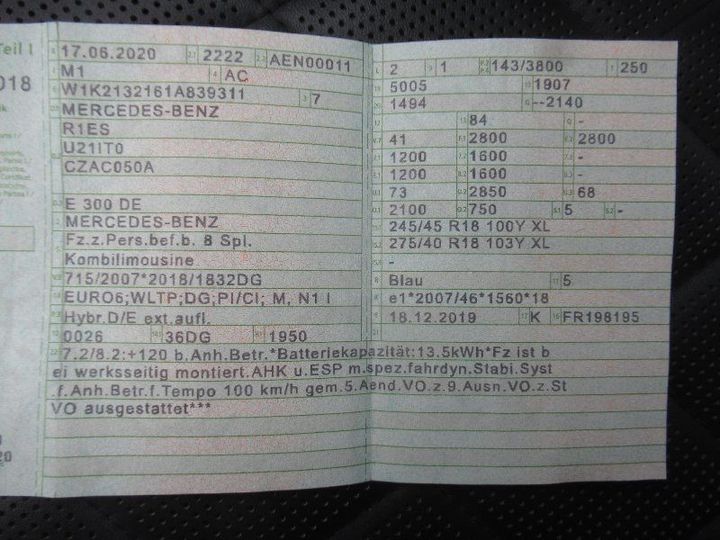 Teil I
018
20
17.06.2020 2222 AEN00011
M1 AC
W1K2132161A839311 7
MERCEDES-BENZ
R1ES
U21IT0
CZAC050A
E 300 DE
MERCEDES-BENZ
Fz.z.Pers.bef.b. 8 Spl.
Kombilimousine
715/2007*2018/1832DG
EURO6;WLTP;DG;PI/CI; M, N1 I
Hybr.D/E ext.aufl.
0026 36DG 1950
2 1 143/3800 250
5005 1907
1494 --2140
84 -
41 2800 2800
1200 1600 -
1200 1600 -
73 2850 68
2100 750 5 -
245/45 R18 100Y XL
275/40 R18 103Y XL
-
Blau 5
e1*2007/46*1560*18
18.12.2019 K FR198195
7.2/8.2:+120 b.Anh.Betr.*Batteriekapazität:13.5kWh*Fz ist b
ei werksseitig montiert.AHK u.ESP m.spez.fahrdyn.Stabi.Syst
.f.Anh.Betr.f.Tempo 100 km/h gem.5.Aend.VO.z.9.Ausn.VO.z.St
VO ausgestattet***